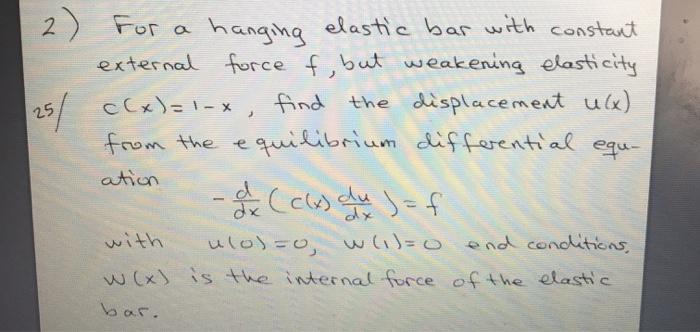 2) For a hanging elastic bar with constant
external force f, but weakening elasticity
25/ c(x)=1-x, find the displacement u(x)
from the equilibrium differential equ-
ation
- d/dx (c(x) du/dx) = f
with u(0)=0, w(1)=0 end conditions,
w(x) is the internal force of the elastic
bar.